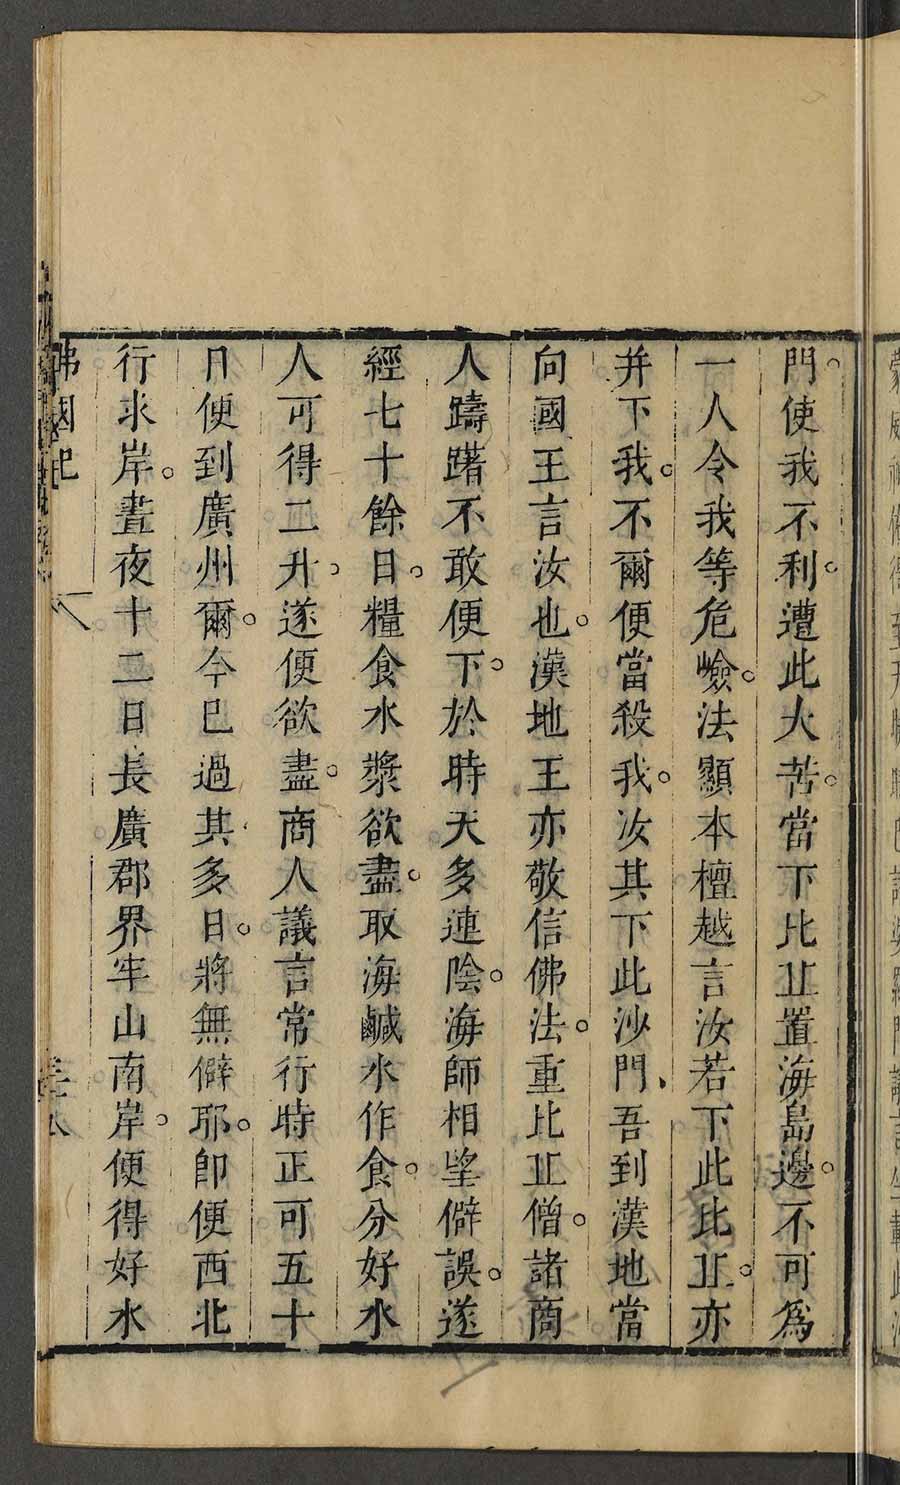 門使我不利遭此大苦當下比丘置海島邊不可為
一人令我等危嶮法顯本檀越言汝若下此比丘亦
并下我不爾便當殺我汝其下此沙門吾到漢地當
向國王言汝也漢地王亦敬信佛法重比丘僧諸商
人躊躇不敢便下於時天多連陰海師相望僻誤遂
經七十餘日糧食水漿欲盡取海鹹水作食分好水
人可得二升遂便欲盡商人議言常行時正可五十
日便到廣州爾今已過其多日將無僻耶即便西北
行求岸晝夜十二日長廣郡界牢山南岸便得好水
佛國記